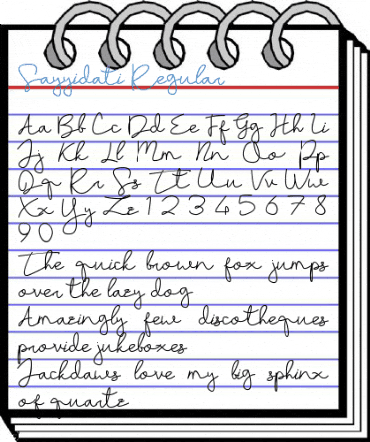 Sayyidati Regular
Aa Bb Cc Dd Ee Ff Gg Hh Ii
Jj Kk Ll Mm Nn Oo Pp
Qq Rr Ss Tt Uu Vv Ww
Xx Yy Zz 1 2 3 4 5 6 7 8
9 0
The quick brown fox jumps
over the lazy dog
Amazingly few discotheques
provide jukeboxes
Jackdaws love my big sphinx
of quartz